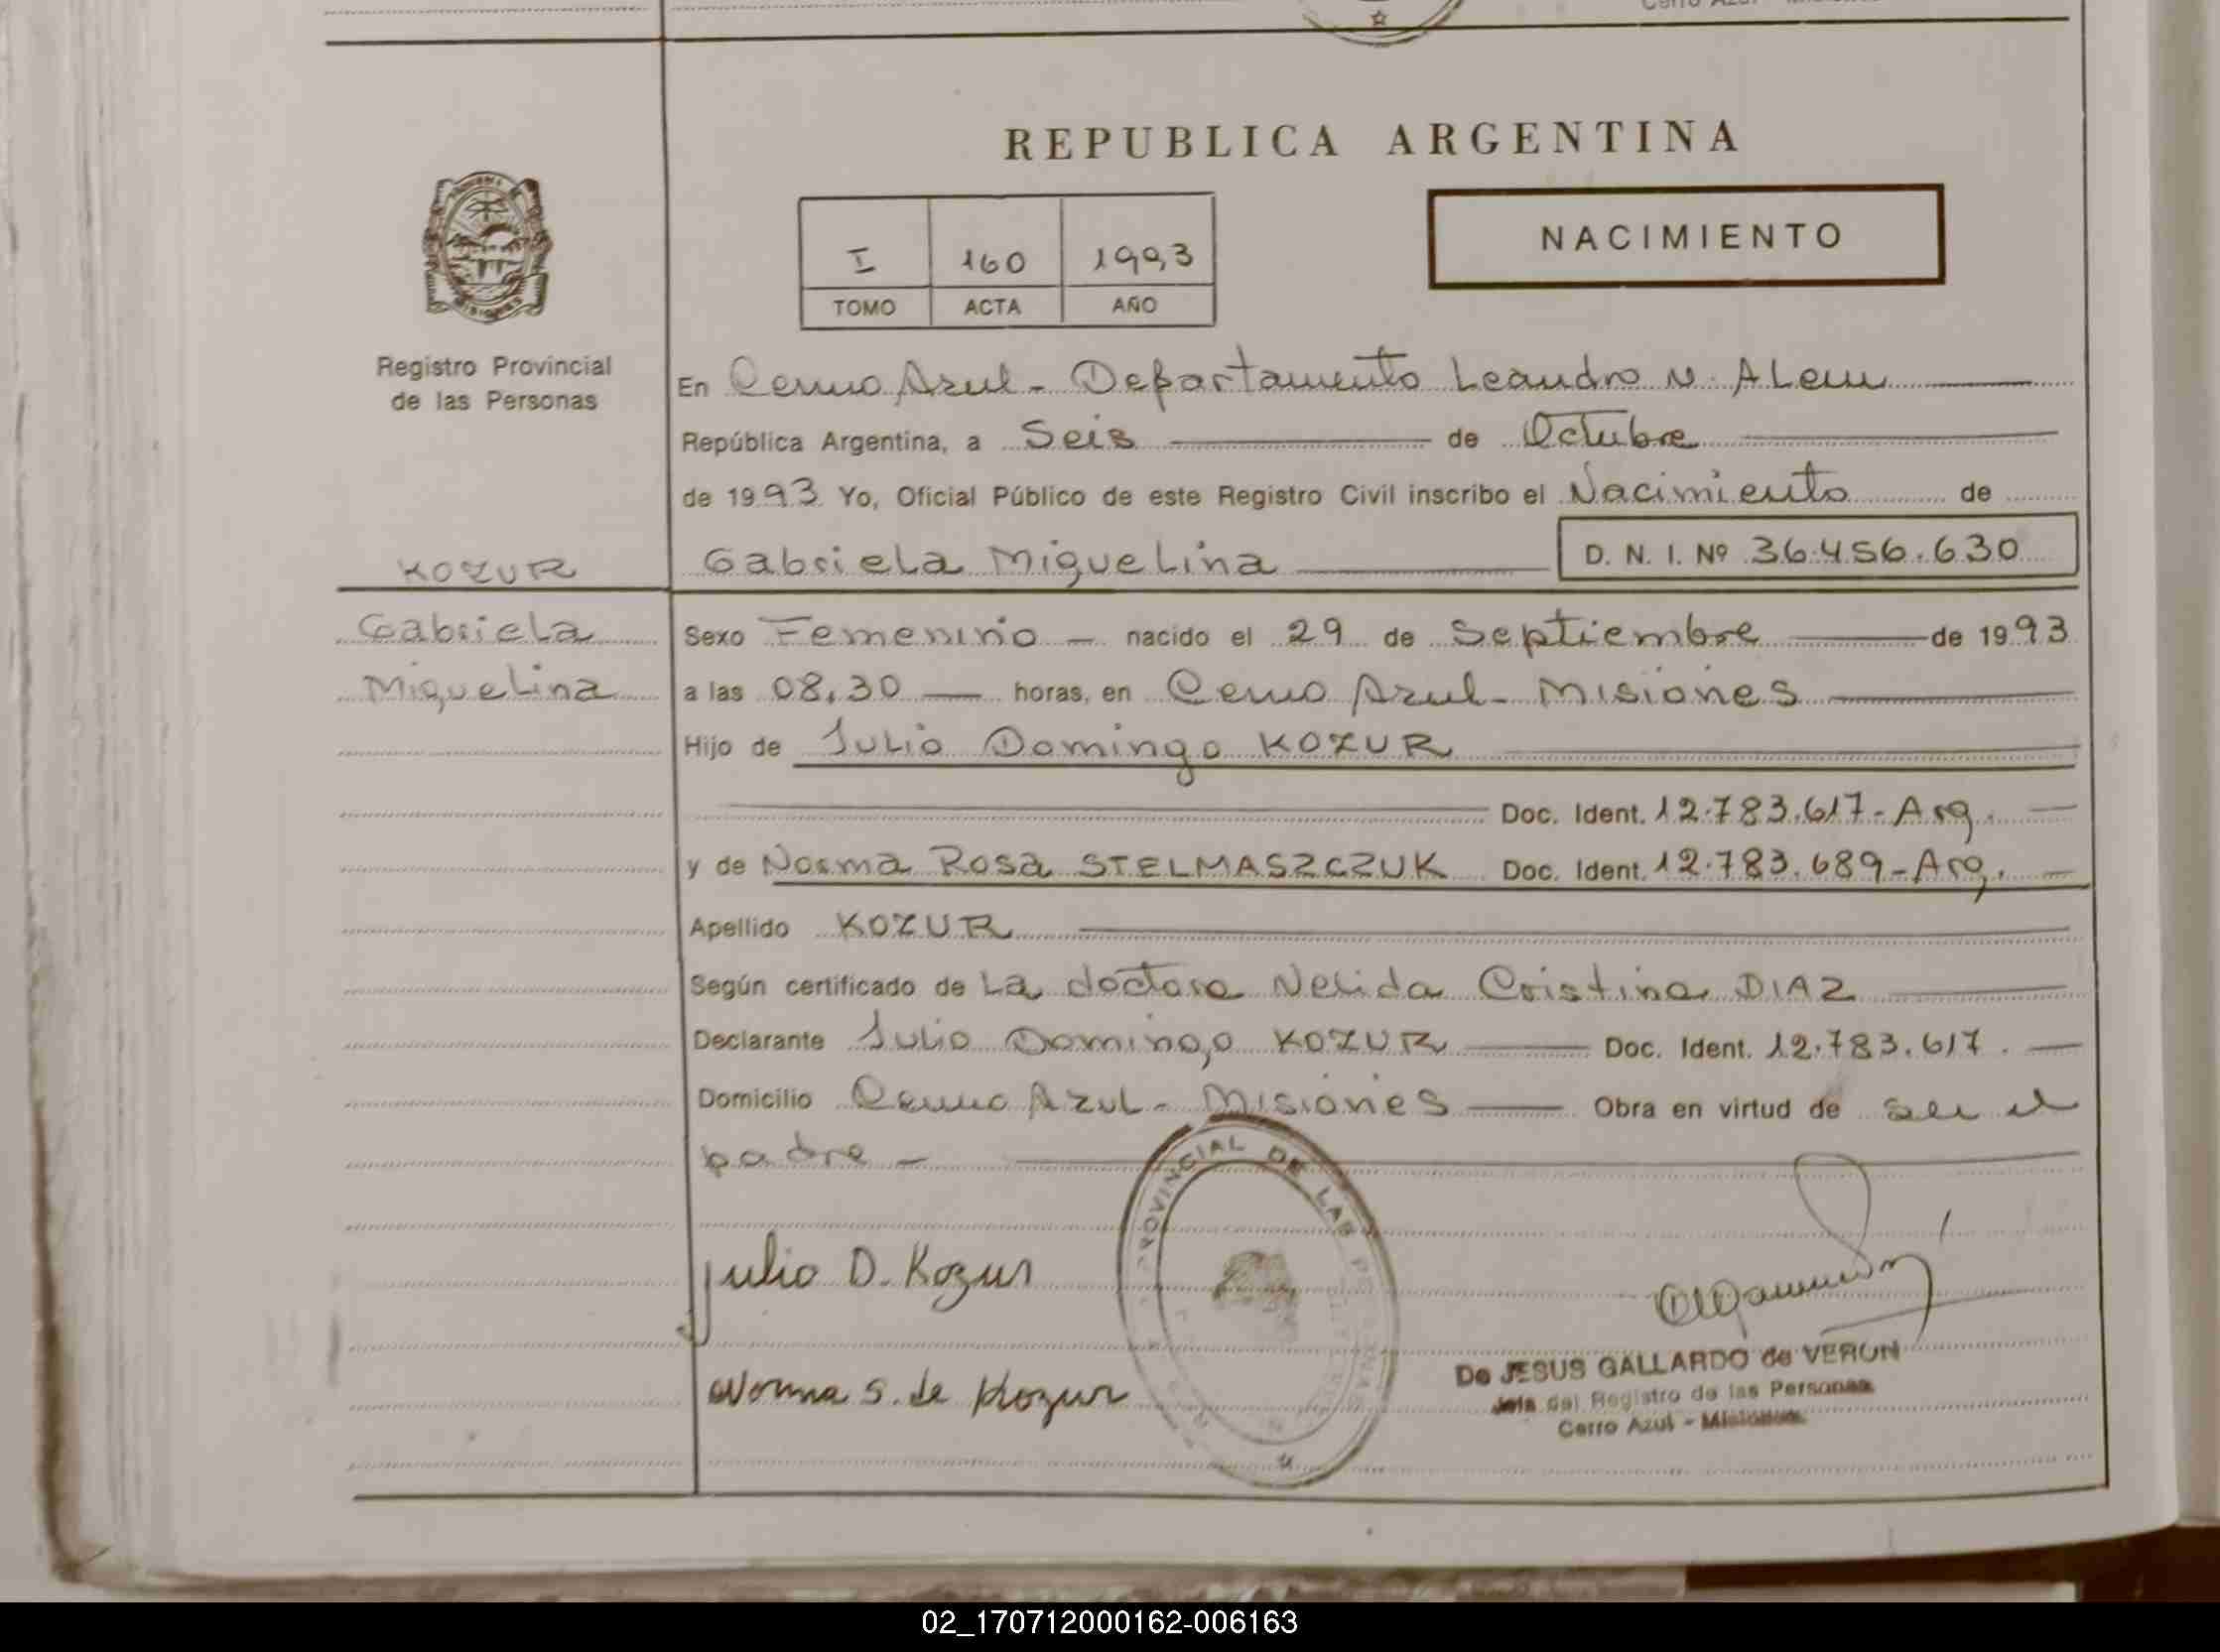 REPUBLICA ARGENTINA
NACIMIENTO
I 160 1993
TOMO ACTA AÑO
Registro Provincial
de las Personas
En Cerro Azul - Departamento Leandro N. ALem
República Argentina, a Seis de Octubre
de 1993 Yo, Oficial Público de este Registro Civil inscribo el Nacimiento de
KOZUR
Gabriela MigueLina D. N. I. Nº 36.456.630
GabrieLa
MigueLina
Sexo Femenino - nacido el 29 de Septiembre de 1993
a las 08.30 horas, en Cerro Azul - Misiones
Hijo de Julio Domingo KOZUR
Doc. Ident. 12.783.617 - Arg.
y de Norma Rosa STELMASZCZUK Doc. Ident. 12.783.689 - Arg.
Apellido KOZUR
Según certificado de La doctora Nelida Cristina DIAZ
Declarante Julio Domingo KOZUR Doc. Ident. 12.783.617.
Domicilio Cerro Azul - Misiones Obra en virtud de ser el
padre -
PROVINCIAL DE LAS PERSONAS
Julio D. Kozur
Norma S. de Kozur
De JESUS GALLARDO de VERON
Jefa del Registro de las Personas
Cerro Azul - Misiones
02_170712000162-006163